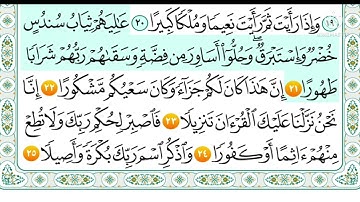 ١٩ وَإِذَا رَأَيْتَ ثَمَّ رَأَيْتَ نَعِيمًا وَمُلْكًا كَبِيرًا ٢٠ عَٰلِيَهُمْ ثِيَابُ سُندُسٍ
خُضْرٌ وَإِسْتَبْرَقٌ ۖ وَحُلُّوٓا۟ أَسَاوِرَ مِن فِضَّةٍ وَسَقَىٰهُمْ رَبُّهُمْ شَرَابًا
طَهُورًا ٢١ إِنَّ هَٰذَا كَانَ لَكُمْ جَزَآءً وَكَانَ سَعْيُكُم مَّشْكُورًا ٢٢ إِنَّا
نَحْنُ نَزَّلْنَا عَلَيْكَ ٱلْقُرْءَانَ تَنزِيلًا ٢٣ فَٱصْبِرْ لِحُكْمِ رَبِّكَ وَلَا تُطِعْ
مِنْهُمْ ءَاثِمًا أَوْ كَفُورًا ٢٤ وَٱذْكُرِ ٱسْمَ رَبِّكَ بُكْرَةً وَأَصِيلًا ٢٥